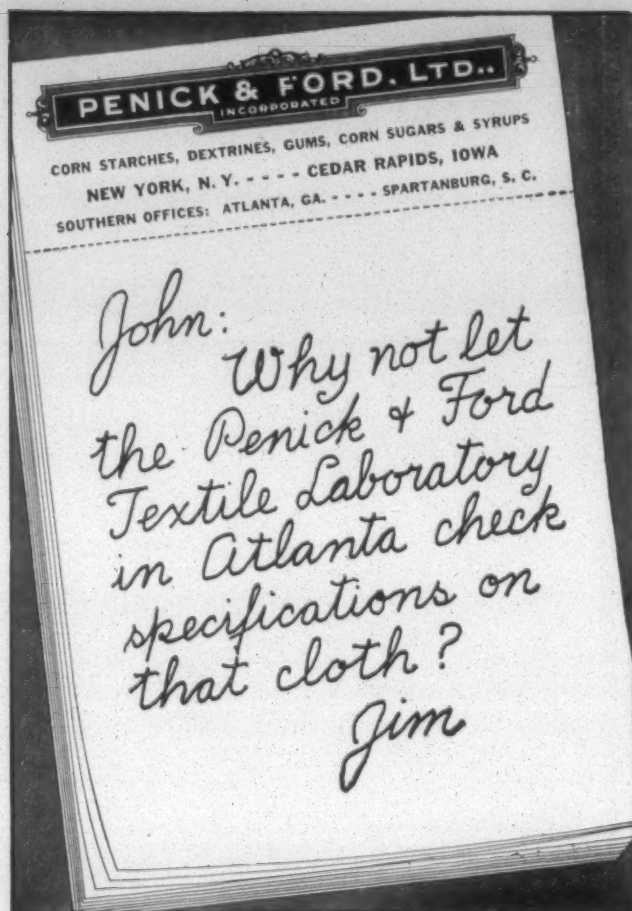 PENICK & FORD, LTD.,
INCORPORATED
CORN STARCHES, DEXTRINES, GUMS, CORN SUGARS & SYRUPS
NEW YORK, N. Y. - - - - CEDAR RAPIDS, IOWA
SOUTHERN OFFICES: ATLANTA, GA. - - - - SPARTANBURG, S. C.
John:
Why not let
the Penick & Ford
Textile Laboratory
in Atlanta check
specifications on
that cloth?
Jim